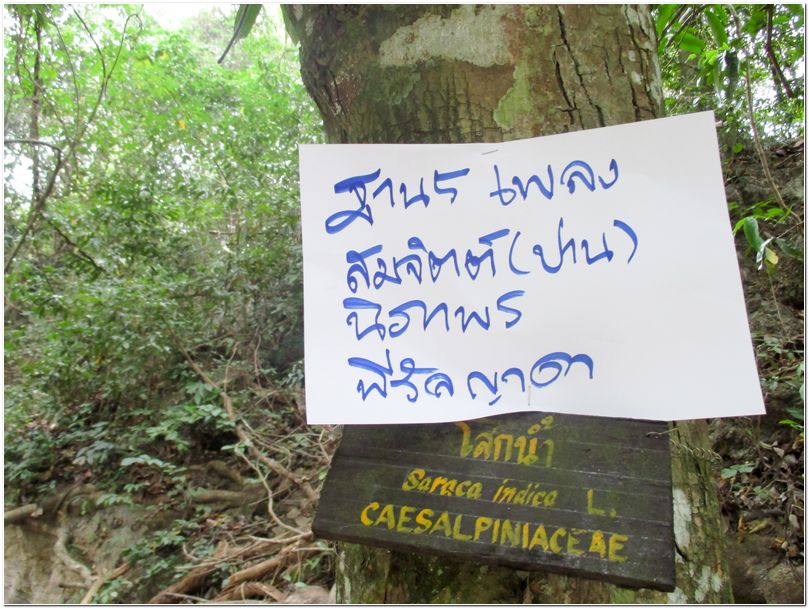 ฐานร เพลง
สมจิตต์ (ป่าน)
นิภาพร
พี่รัลญาดา
โสกน้ำ
Saraca indica L.
CAESALPINIACEAE